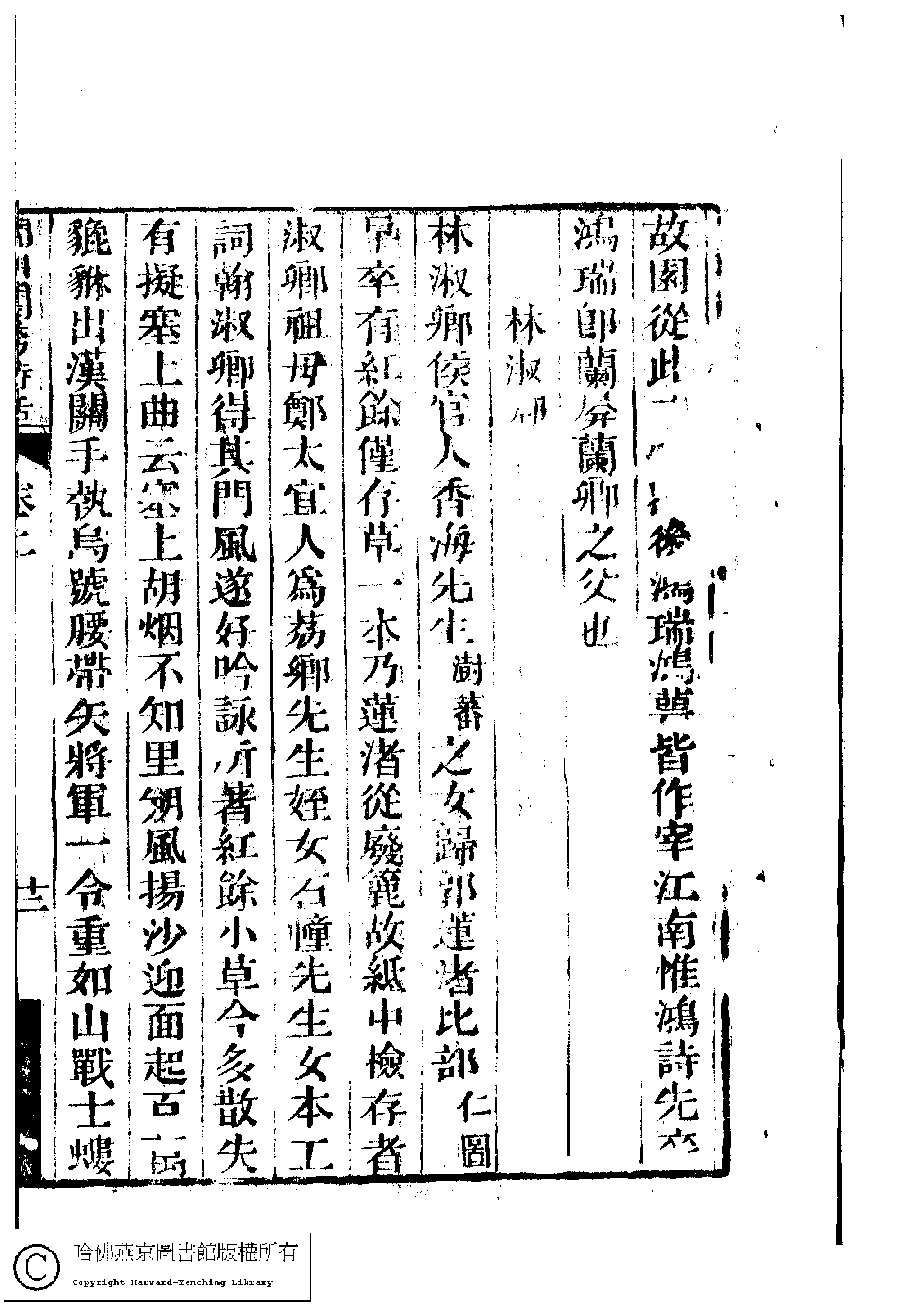 故園從此 徐鴻瑞鴻 皆作宰江南惟鴻詩先
鴻瑞即蘭 蘭卿之父也
林淑卿
林淑卿侯官人香海先生澍蕃之女歸郭蓮渚比部仁圖
早卒有紅餘僅存草一本乃蓮渚從廢簏故紙中檢存者
淑卿祖母鄭太宜人為荔鄉先生姪女石幢先生女本工
詞翰淑卿得其門風遂好吟詠所著紅餘小草今多散失
有擬塞上曲云塞上胡烟不知里朔風揚沙迎面起百
貔貅出漢關手執烏號腰帶矢將軍一令重如山戰士
卷二
十二
哈佛燕京圖書館版權所有
Copyright Harvard-Yenching Library